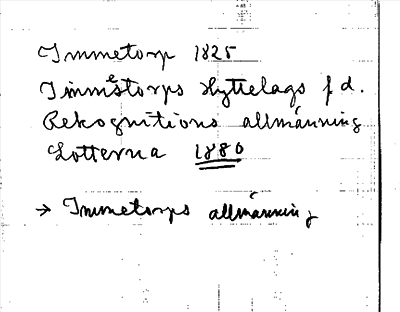 Immetorp 1825
Immetorps Hyttelags f d.
Rekognitions allmänning
Lotterna 1880
→ Immetorps allmänning